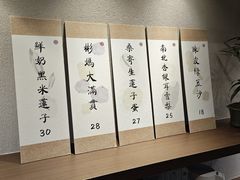 鮮奶黑米蓮子
30
彬媽大滿貫
28
桑寄生蓮子蛋
27
南北杏銀耳雪梨
25
陳皮綠豆沙
18